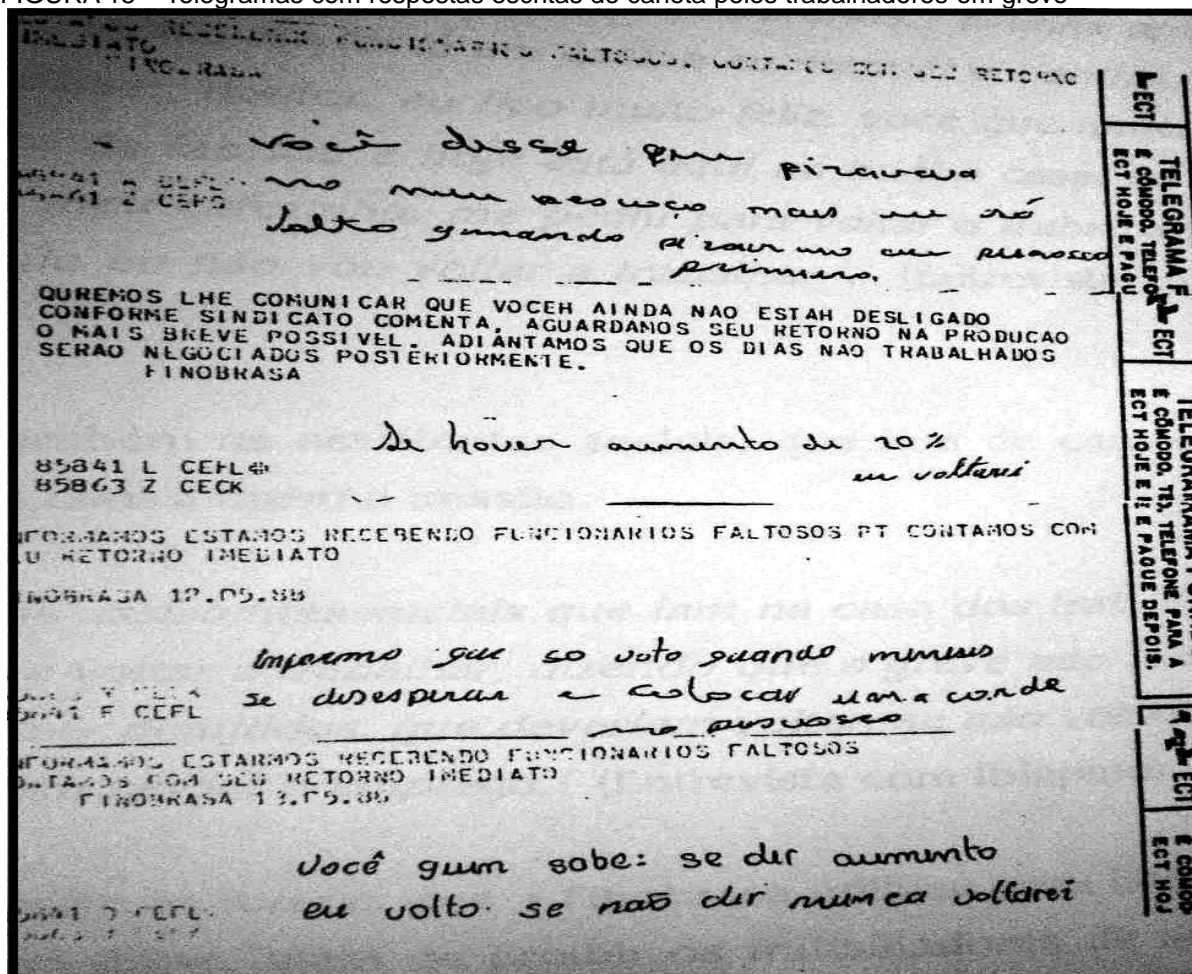 FIGURA 15 – Telegramas com respostas escritas de caneta pelos trabalhadores em greve
FUNCIONARIOS FALTOSOS. CONTAMOS COM SEU RETORNO
IMEDIATO
FINOBRASA
você disse que pizavava
no meu pescoço mais eu só
salto quando no eu
primero.
QUREMOS LHE COMUNICAR QUE VOCEH AINDA NAO ESTAH DESLIGADO
CONFORME SINDICATO COMENTA, AGUARDAMOS SEU RETORNO NA PRODUCAO
O MAIS BREVE POSSIVEL. ADIANTAMOS QUE OS DIAS NAO TRABALHADOS
SERAO NEGOCIADOS POSTERIORMENTE.
FINOBRASA
Se hover aumento de 20%
eu voltarei
85841 L CEFL
85863 Z CECK
NFORMAMOS ESTAMOS RECEBENDO FUNCIONARIOS FALTOSOS PT CONTAMOS COM
EU RETORNO IMEDIATO
INOBRASA 12.05.88
Informo que so voto quando
se disesperar e colocar uma corda
no
NFORMAMOS ESTARMOS RECEBENDO FUNCIONARIOS FALTOSOS
ONTAMOS COM SEU RETORNO IMEDIATO
FINOBRASA
Você quem sabe: se der aumento
eu volto. se naõ der nunca voltarei
ECT
TELEGRAMA F
É CÔMODO. TELEFON
ECT HOJE E PAGU
ECT
TELEGRAMA
É CÔMODO. TELEFONE PARA A
ECT HOJE E PAGUE DEPOIS.
ECT
É CÔMOD
ECT HOJ